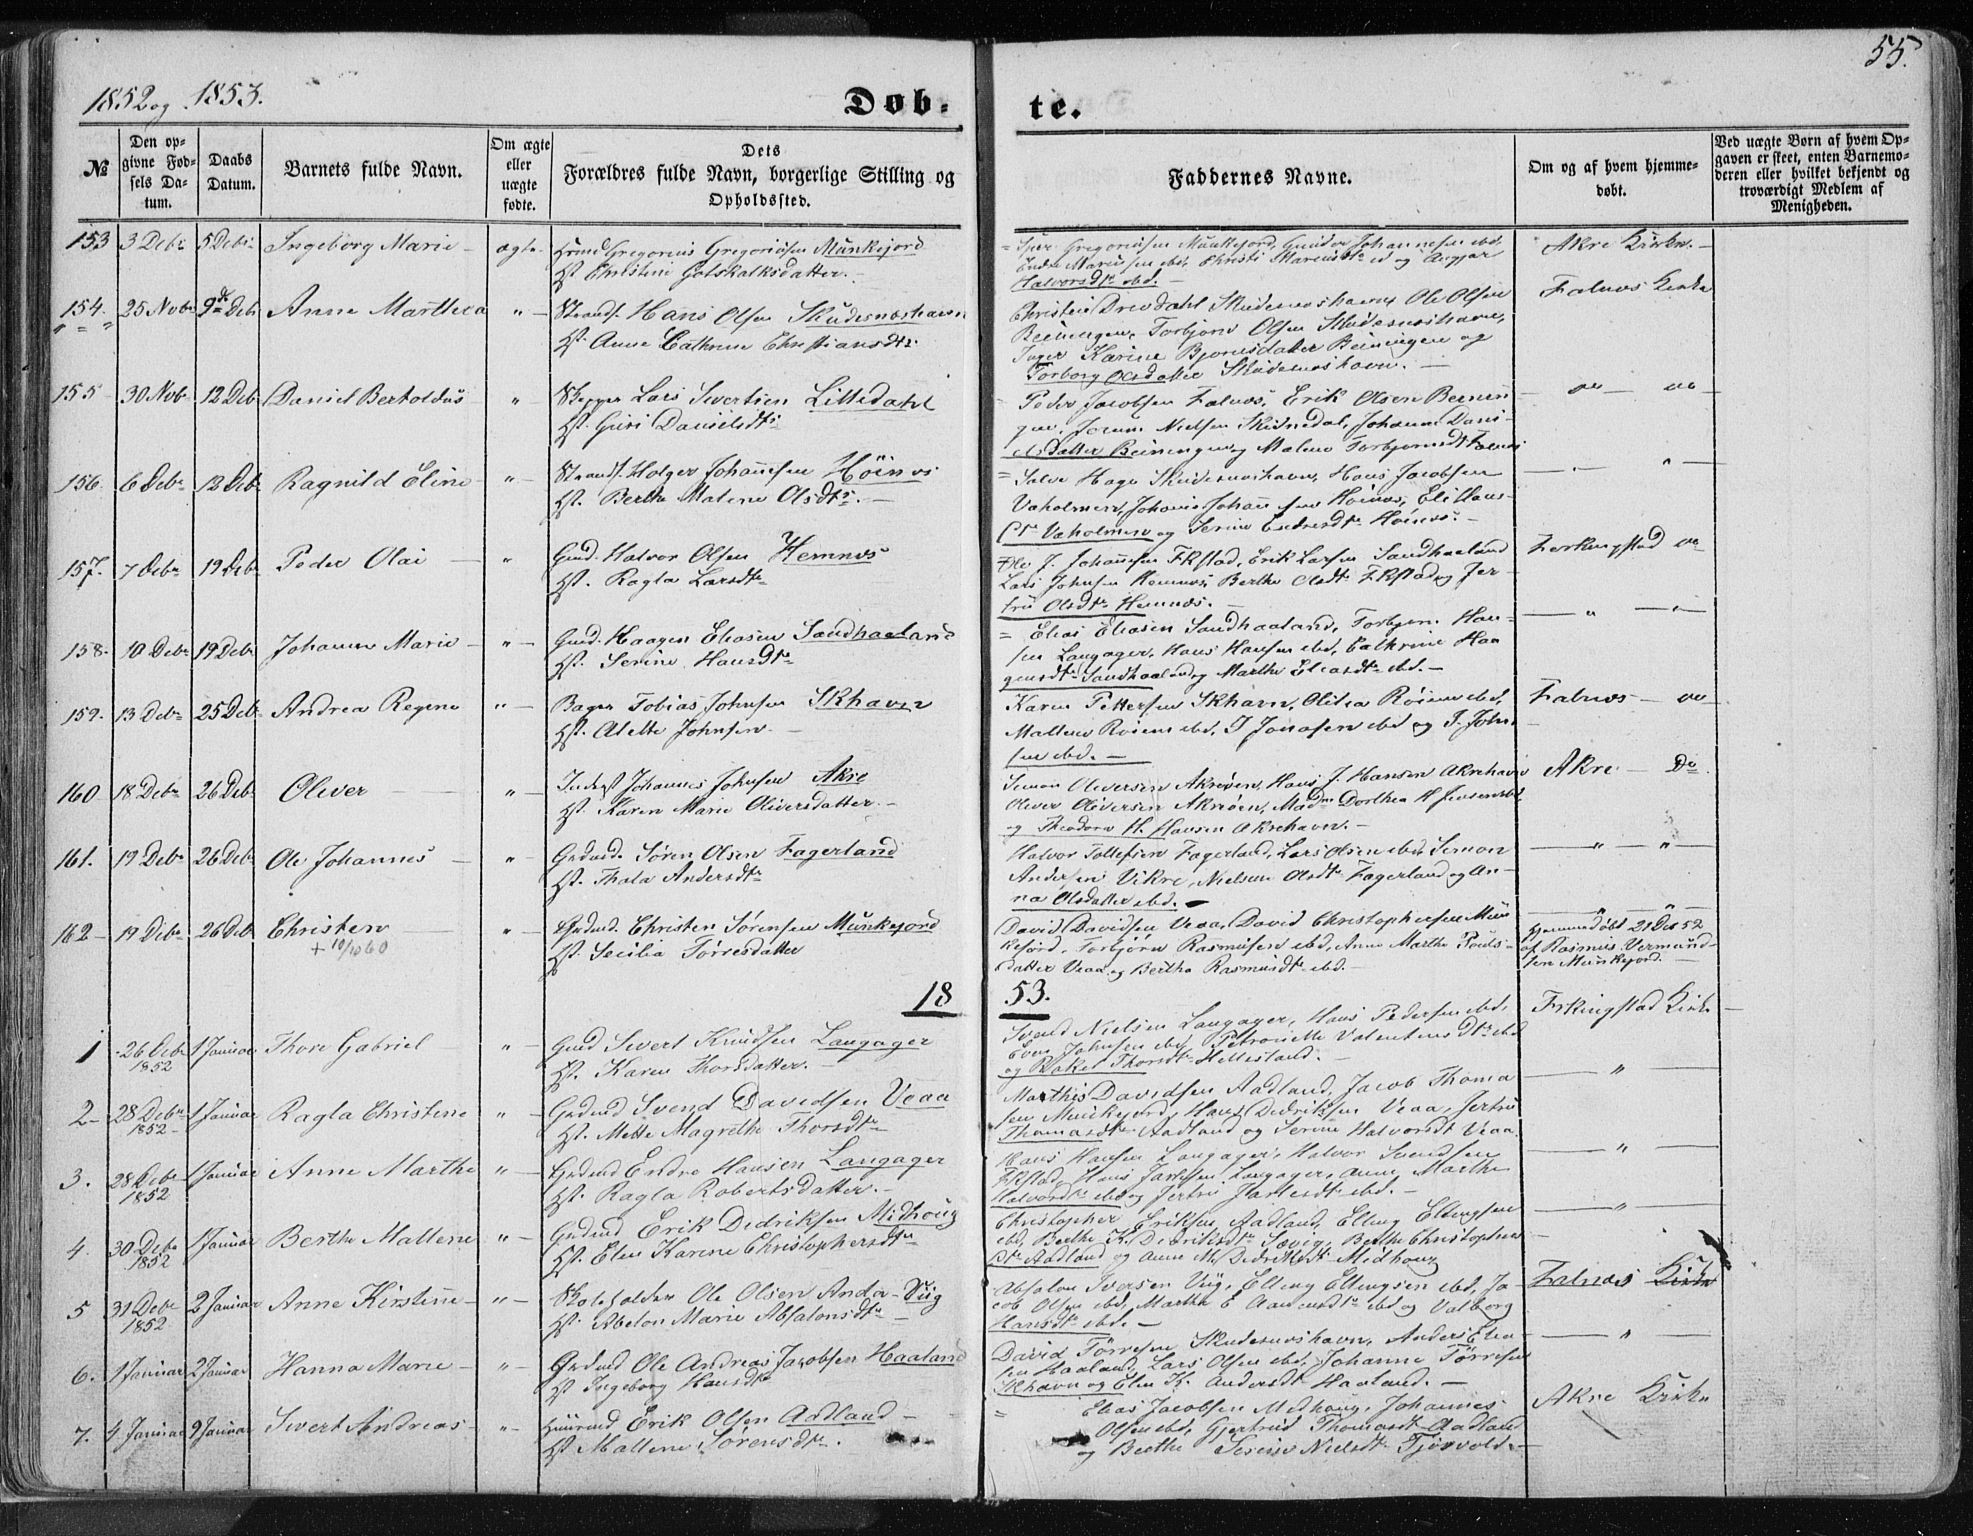 55.
1852 og 1853.
Døb-
te.
№
Den opgivne Fødsels Datum.
Daabs Datum.
Barnets fulde Navn.
Om ægte eller uægte fødte.
Dets Forældres fulde Navn, borgerlige Stilling og Opholdssted.
Faddernes Navne.
Om og af hvem hjemmedøbt.
Ved uægte Børn af hvem Opgaven er skeet, enten Barnemoderen eller hvilket bekjendt og troværdigt Medlem af Menigheden.
153 3 Debr 5 Debr Ingeborg Marie - ægte - Gregorius Gregoriusen Munkejord
Hst. Christine Gotskalksdatter. -
Gregoriusen Munkejord, Gunder Johannesen ebd,
Endre Mariusen ebd, Christi
Halvorsdtr ebd. -
Akre Kirke. -
154. 25 Nobr 9de Debr Anne Marthea " - Strands. Hans Olsen Skudesnæshavn
Hst. Anne Cathrine Christiansdtr
Christen Drevdahl Skudesnæshavn, Ole Olsen
Beiningen, Torbjørn Olsen Skudesnæshavn,
Inger Karine Bjørnsdatter Beiningen og
Torborg Olsdatter Skudesnæshavn. -
Falnæs Kirke
155 - 30 Nobr 12 Debr Daniel Bertoldus " Lars Sivertsen Littledahl
Hst. Guri Danielsdtr
Peder Jacobsen Falnæs, Erik Olsen Beinin
gen, Nielsen Skudnedal, Johanne Dani-
elsdatter Beiningen og Malene Torbjørnsdtr Falnæs
156. 6 Debr 12 Debr Ragnild Eline - " - Strands. Holger Johannesen Høinæs
Hst. Berthe Malene Olsdtr. -
= Salve Hage Skudesnæshavn, Hans Jacobsen
Vaholmen, Johannis Johannesen Høinæs, Eli Hans-
dtr Vaholmen og Serine Endresdtr Høinæs. -
157. 7 Debr 19 Debr Peder Olai - " Gmd. Halvor Olsen Hemnæs
Hst. Ragla Larsdtr
Ole J. Johannesen Fkstad, Erik Larsen Sandhaaland
Lars Johnsen Hemnæs, Berthe Olsdtr Fkstad og Jer-
tru Olsdtr Hemnæs. -
Ferkingstad
158. 10 Debr 19 Debr Johanne Marie - " - Gmd. Haagen Eliasen Sandhaaland
Hst. Serine Hansdtr
= Elias Eliasen Sandhaaland, Torbjørn Han-
sen Langager, Hans Hansen ebd, Cathrine Haa
gensdtr Sandhaaland og Marthe Eliasdtr ebd. -
159. 13 Debr 25 Debr Andrea Regine " - Bager Tobias Johnsen Skhavn
Hst. Alette Johnsen -
Karen Pettersen Skhavn, Olitea Røiens ebd,
Mallene Røiens ebd, J Jonasen ebd og J. John-
sen ebd. -
Falnæs -
160 18 Debr 26 Debr Oliver - " - Inderst Johannes Johnsen Akre
Hst. Karen Marie Oliversdatter. -
Simon Oliversen Akreøen, Hans J. Hansen Akrehavn
Oliver Oliversen Akreøen, Madm Dorthea H Jensen ebd,
og Theodora H. Hansen Akrehavn. -
Akre - Do
161. 19 Debr 26 Debr Ole Johannes - " - Grdmd. Søren Olsen Fagerland
Hst. Thala Andersdtr
Halvor Tollefsen Fagerland, Lars Olsen ebd, Simon
Andersen Vikre, Nielsine Olsdtr Fagerland og An-
na Olsdatter ebd. -
162 - 19 Debr 26 Debr Christen - " - Grdmd. Christen Sørensen Munkejord
+ 10/10 60
Hst. Secilia Tørresdatter
David Davidsen Veaa, David Christophersen Mun
kejord, Torbjørn Rasmusen ebd, Anne Marthe Pouls-
datter Veaa og Berthe Rasmusdtr ebd. -
Hjemmedøbt 21 Des 52
af Rasmus Vermund-
sen Munkejord. -
18 53.
1 26 Debr 1852 1 Januar Thore Gabriel " - Gmd Sivert Knudsen Langager
Hst. Karen Thorsdatter. -
Svend Nielsen Langager, Hans Pedersen ebd,
Johnsen ebd, Petronelle Valentinsdtr ebd
og Rakel Thorsdtr Hellesland. -
Frkingstad Kirke
2 - 28 Debr 1852 - 1 Januar Ragla Christine " - Grdmd Svend Davidsen Veaa
Hst. Mette Magrethe Thorsdtr
Mathis Davidsen Aadland, Jacob Thoma
sen Munkejord, Hans Didriksen Veaa, Jertru
Thomasdtr Aadland og Serine Halvorsdtr Veaa.
3. 28 Debr 1852 1 Januar Anne Marthe " - Grdmd Endre Hansen Langager
Hst. Ragla Robertsdatter. -
Hans Hansen Langager, Halvor Svendsen
Fkstad, Hans Langager, Anne Marthe
Halvorsdtr ebd og Jertru ebd. -
4. 30 Debr 1852 1 Januar Berthe Mallene " - Grdmd Erik Didriksen Midhoug
Hst. Elen Karine Christophersdtr
Christopher Eriksen Aadland, Elling Ellingsen
ebd, Berthe K. Didriksdtr Sævig, Berthe Christopher
dtr Aadland og Anne M. Didriksdtr Midhoug
5 31 Debr 1852 2 Januar Anne Kirstine - " - Skoleholder Ole Olsen Anda - Viig
Hst. Abelon Marie Absalonsdtr -
Absalon Iversen Viig, Elling Ellingsen ebd, Ja
cob Olsen ebd, Martha E ebd og Valborg
Hansdtr ebd. -
Falnæs Kirke
6. 1 Januar 2 Januar Hanna Marie - " - Grdmd Ole Andreas Jacobsen Haaland
Hst Ingeborg Hansdtr
David Tørresen Skudesnæshavn, Anders Elia-
sen Haaland, Lars Olsen ebd, Johanne Tørresen
Skhavn og Elen K. Andersdtr Haaland. -
7. 4 Januar 9 Januar Sivert Andreas - " - Huusmd Erik Olsen Aadland -
Hst. Mallene Sørensdtr.
= Elias Jacobsen Midhoug, Johannes
Olsen ebd, Gjertrud Thomasdtr Aadland
og Berthe Serine Nielsdtr Tjøsvold. -
Akre Kirke